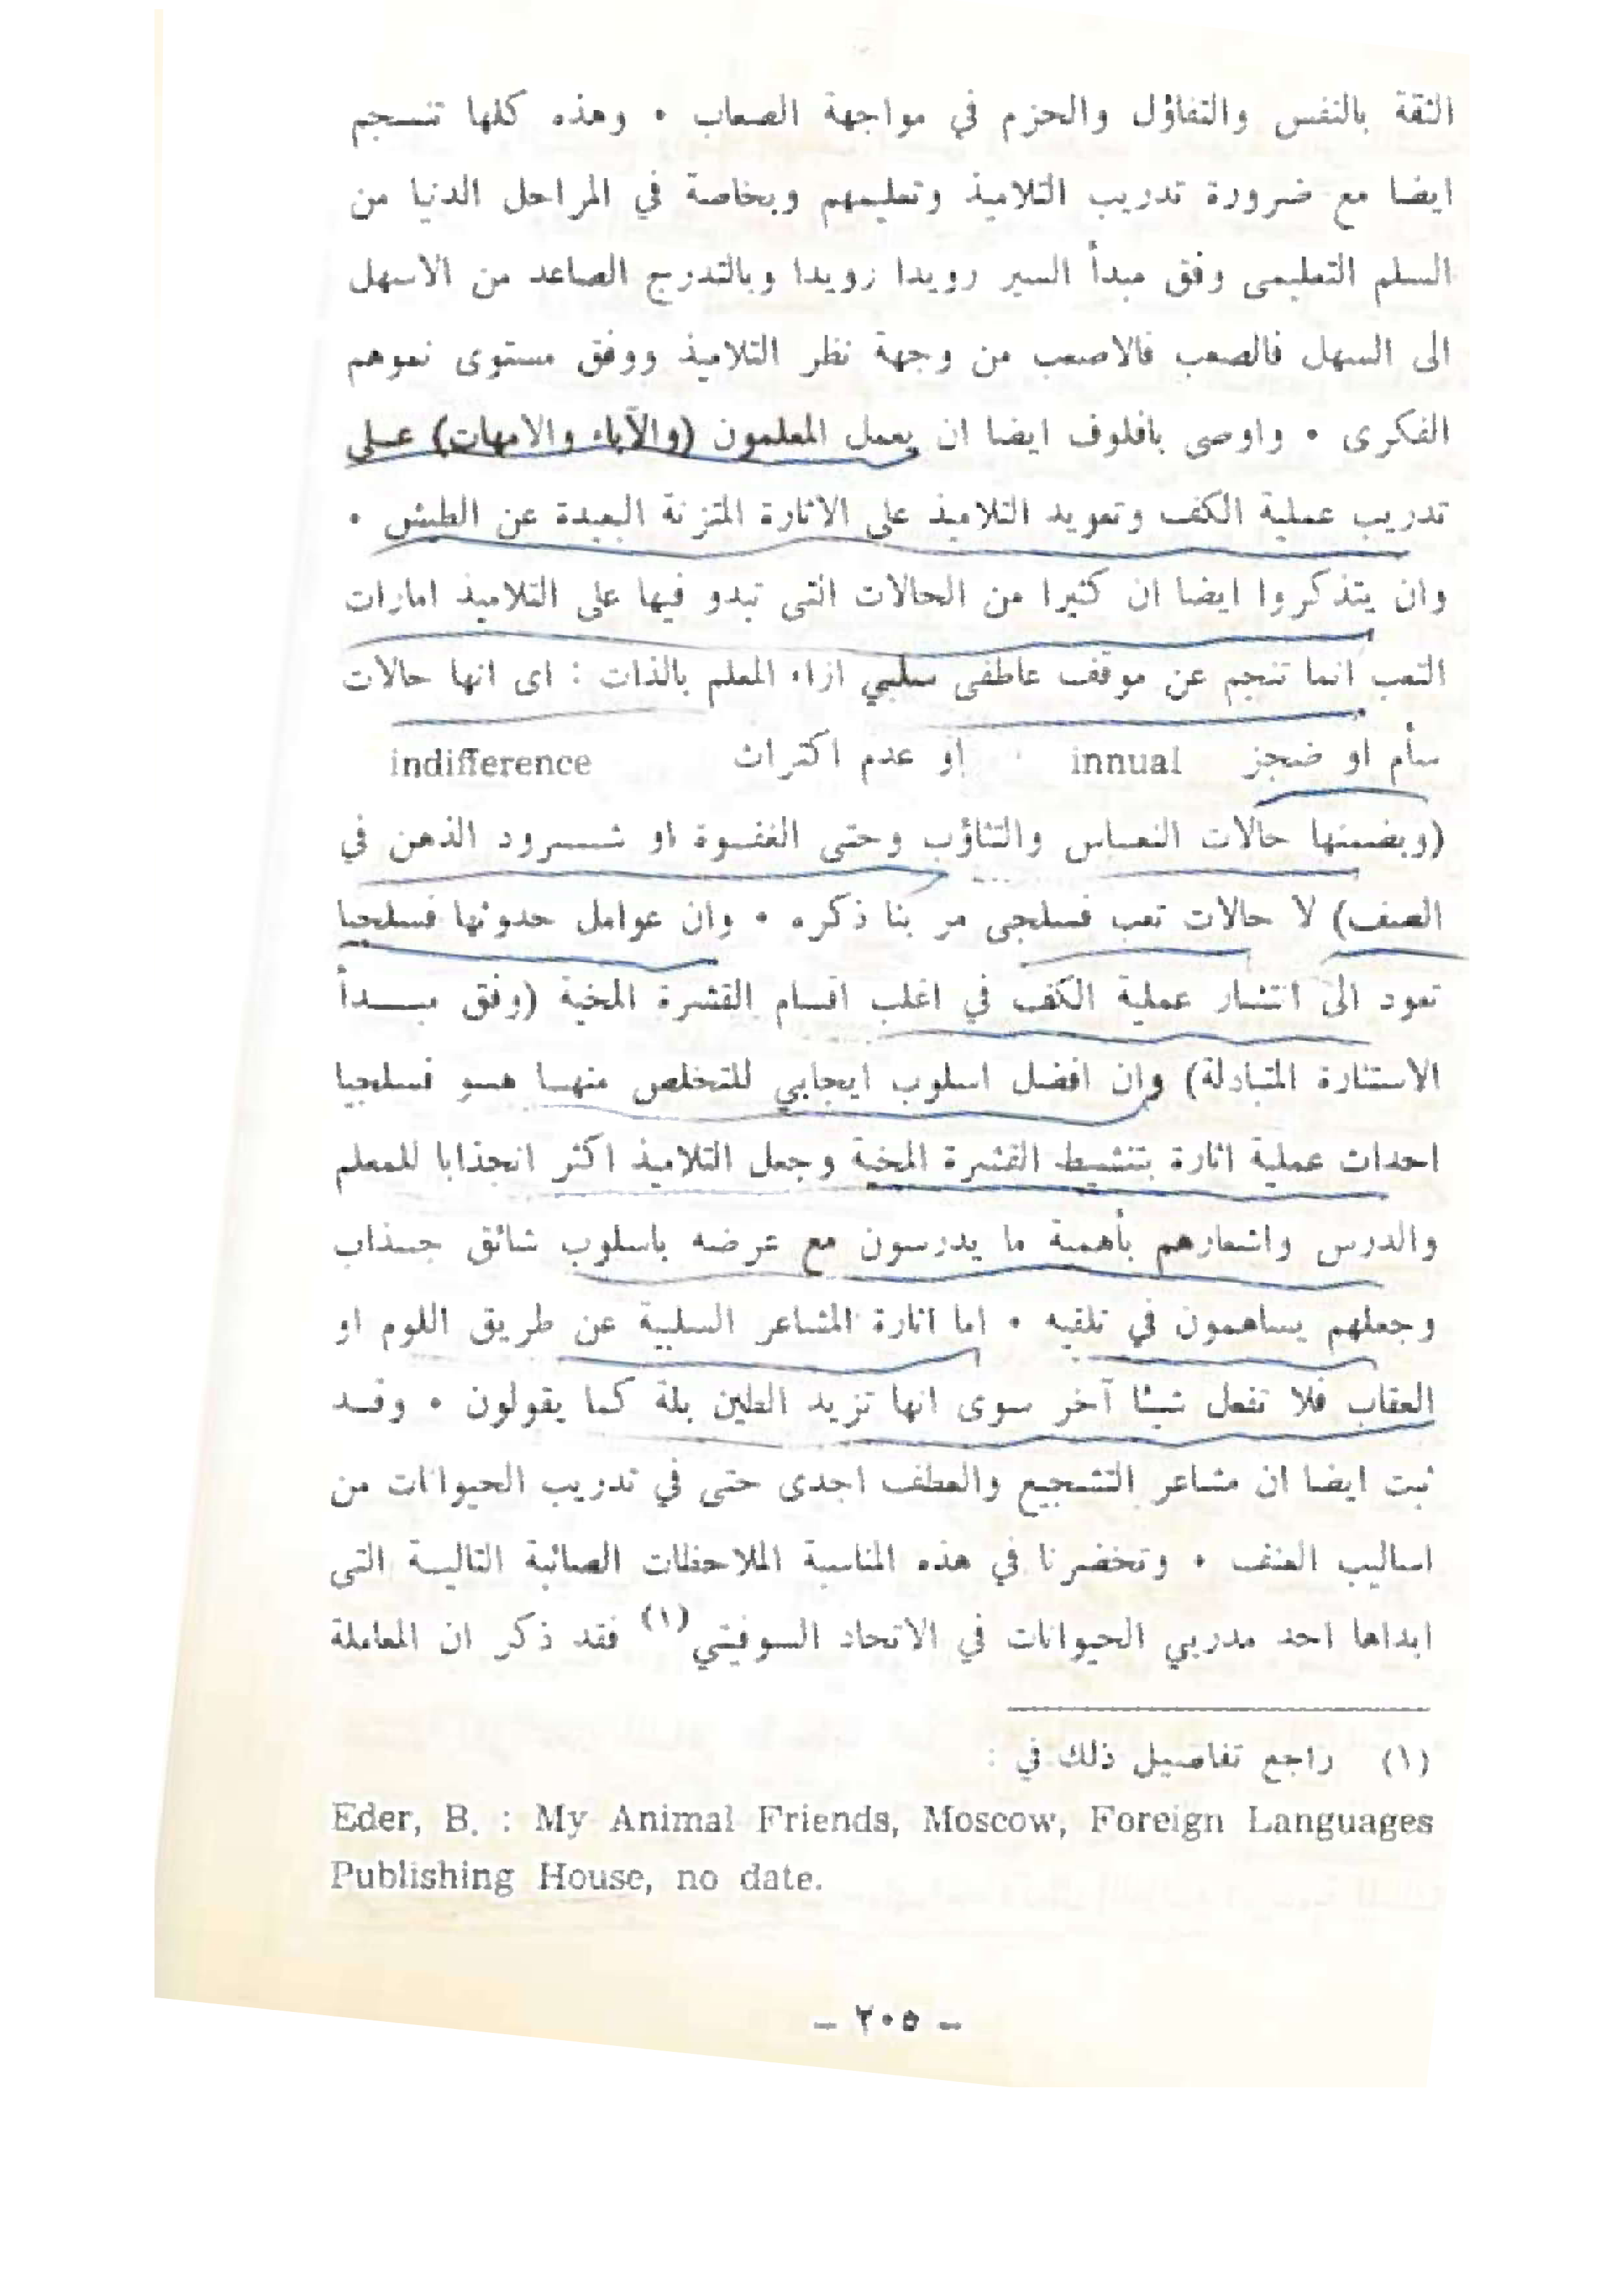 الثقة بالنفس والتفاؤل والحزم في مواجهة الصعاب • وهذه كلها تنسجم
ايضا مع ضرورة تدريب التلاميذ وتعليمهم وبخاصة في المراحل الدنيا من
السلم التعليمى وفق مبدأ السير رويدا رويدا وبالتدرج الصاعد من الاسهل
الى السهل فالصعب فالاصعب من وجهة نظر التلاميذ ووفق مستوى نموهم
الفكرى • واوصى بافلوف ايضا ان يعمل المعلمون (والآباء والامهات) عـلى
تدريب عملية الكف وتعويد التلاميذ على الاثارة المتزنة البعيدة عن الطيش •
وان يتذكروا ايضا ان كثيرا من الحالات التى تبدو فيها على التلاميذ امارات
التعب انما تنجم عن موقف عاطفى سلبي ازاء المعلم بالذات : اى انها حالات
سأم او ضجر innual او عدم اكتراث indifference
(وبضمنها حالات النعـاس والتثاؤب وحتى الغفـوة او شـــرود الذهن في
الصنف) لا حالات تعب فسلجى مر بنا ذكره • وان عوامل حدوثها فسلجيا
تعود الى انتشار عملية الكف في اغلب اقسام القشرة المخية (وفق مبــدأ
الاستثارة المتبادلة) وان افضل اسلوب ايجابي للتخلص منهـا هـو فسلجيا
احداث عملية اثارة بتنشيط القشرة المخية وجعل التلاميذ اكثر انجذابا للمعلم
والدرس واشعارهم بأهمية ما يدرسون مع عرضه باسلوب شائق جـذاب
وجعلهم يساهمون في تلقيه • اما اثارة المشاعر السلبية عن طريق اللوم او
العقاب فلا تفعل شيئا آخر سوى انها تزيد الطين بلة كما يقولون • وقـد
ثبت ايضا ان مشاعر التشجيع والعطف اجدى حتى في تدريب الحيوانات من
اساليب العنف • وتحضرنا في هذه المناسبة الملاحظات الصائبة التاليـة التى
ابداها احد مدربي الحيوانات في الاتحاد السوفيتي(١) فقد ذكر ان المعاملة
(١) راجع تفاصيل ذلك في :
Eder, B. : My Animal Friends, Moscow, Foreign Languages
Publishing House, no date.
– ٢٠٥ –